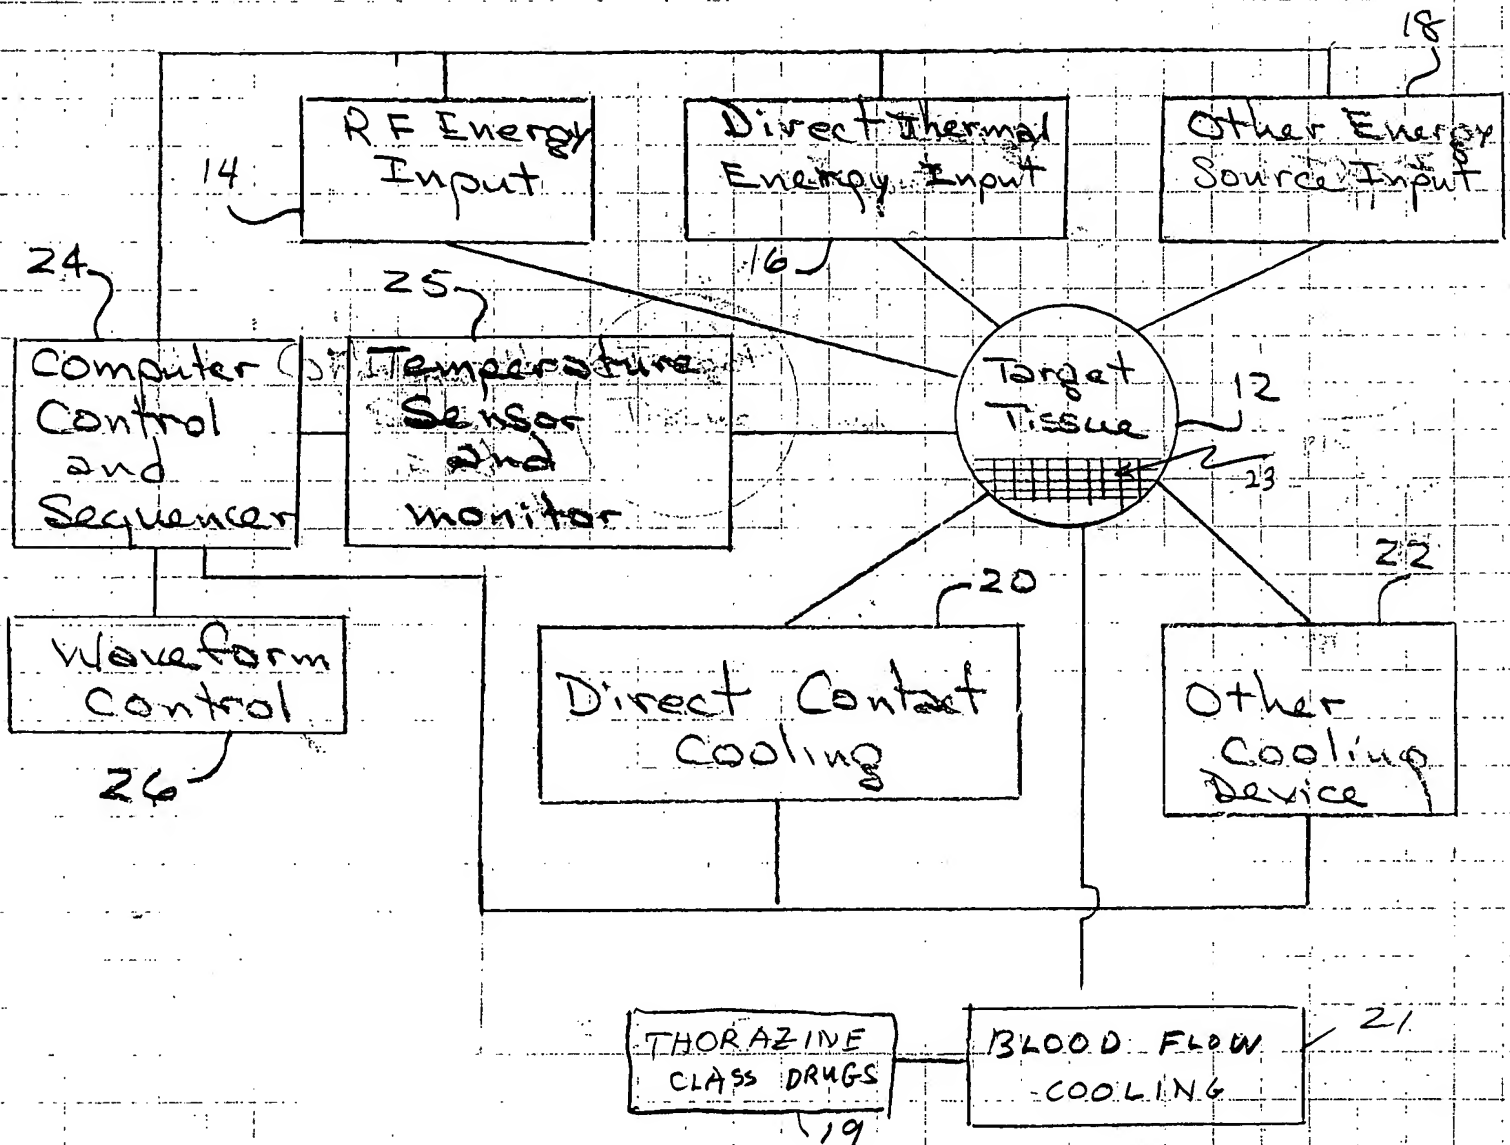 18
RF Energy
Input
Direct Thermal
Energy Input
Other Energy
Source Input
14
16
24
25
Computer
Control
and
Sequencer
Temperature
Sensor
and
monitor
Target
Tissue
12
23
20
22
Waveform
Control
26
Direct Contact
Cooling
Other
Cooling
Device
THORAZINE
CLASS DRUGS
19
BLOOD FLOW
COOLING
21